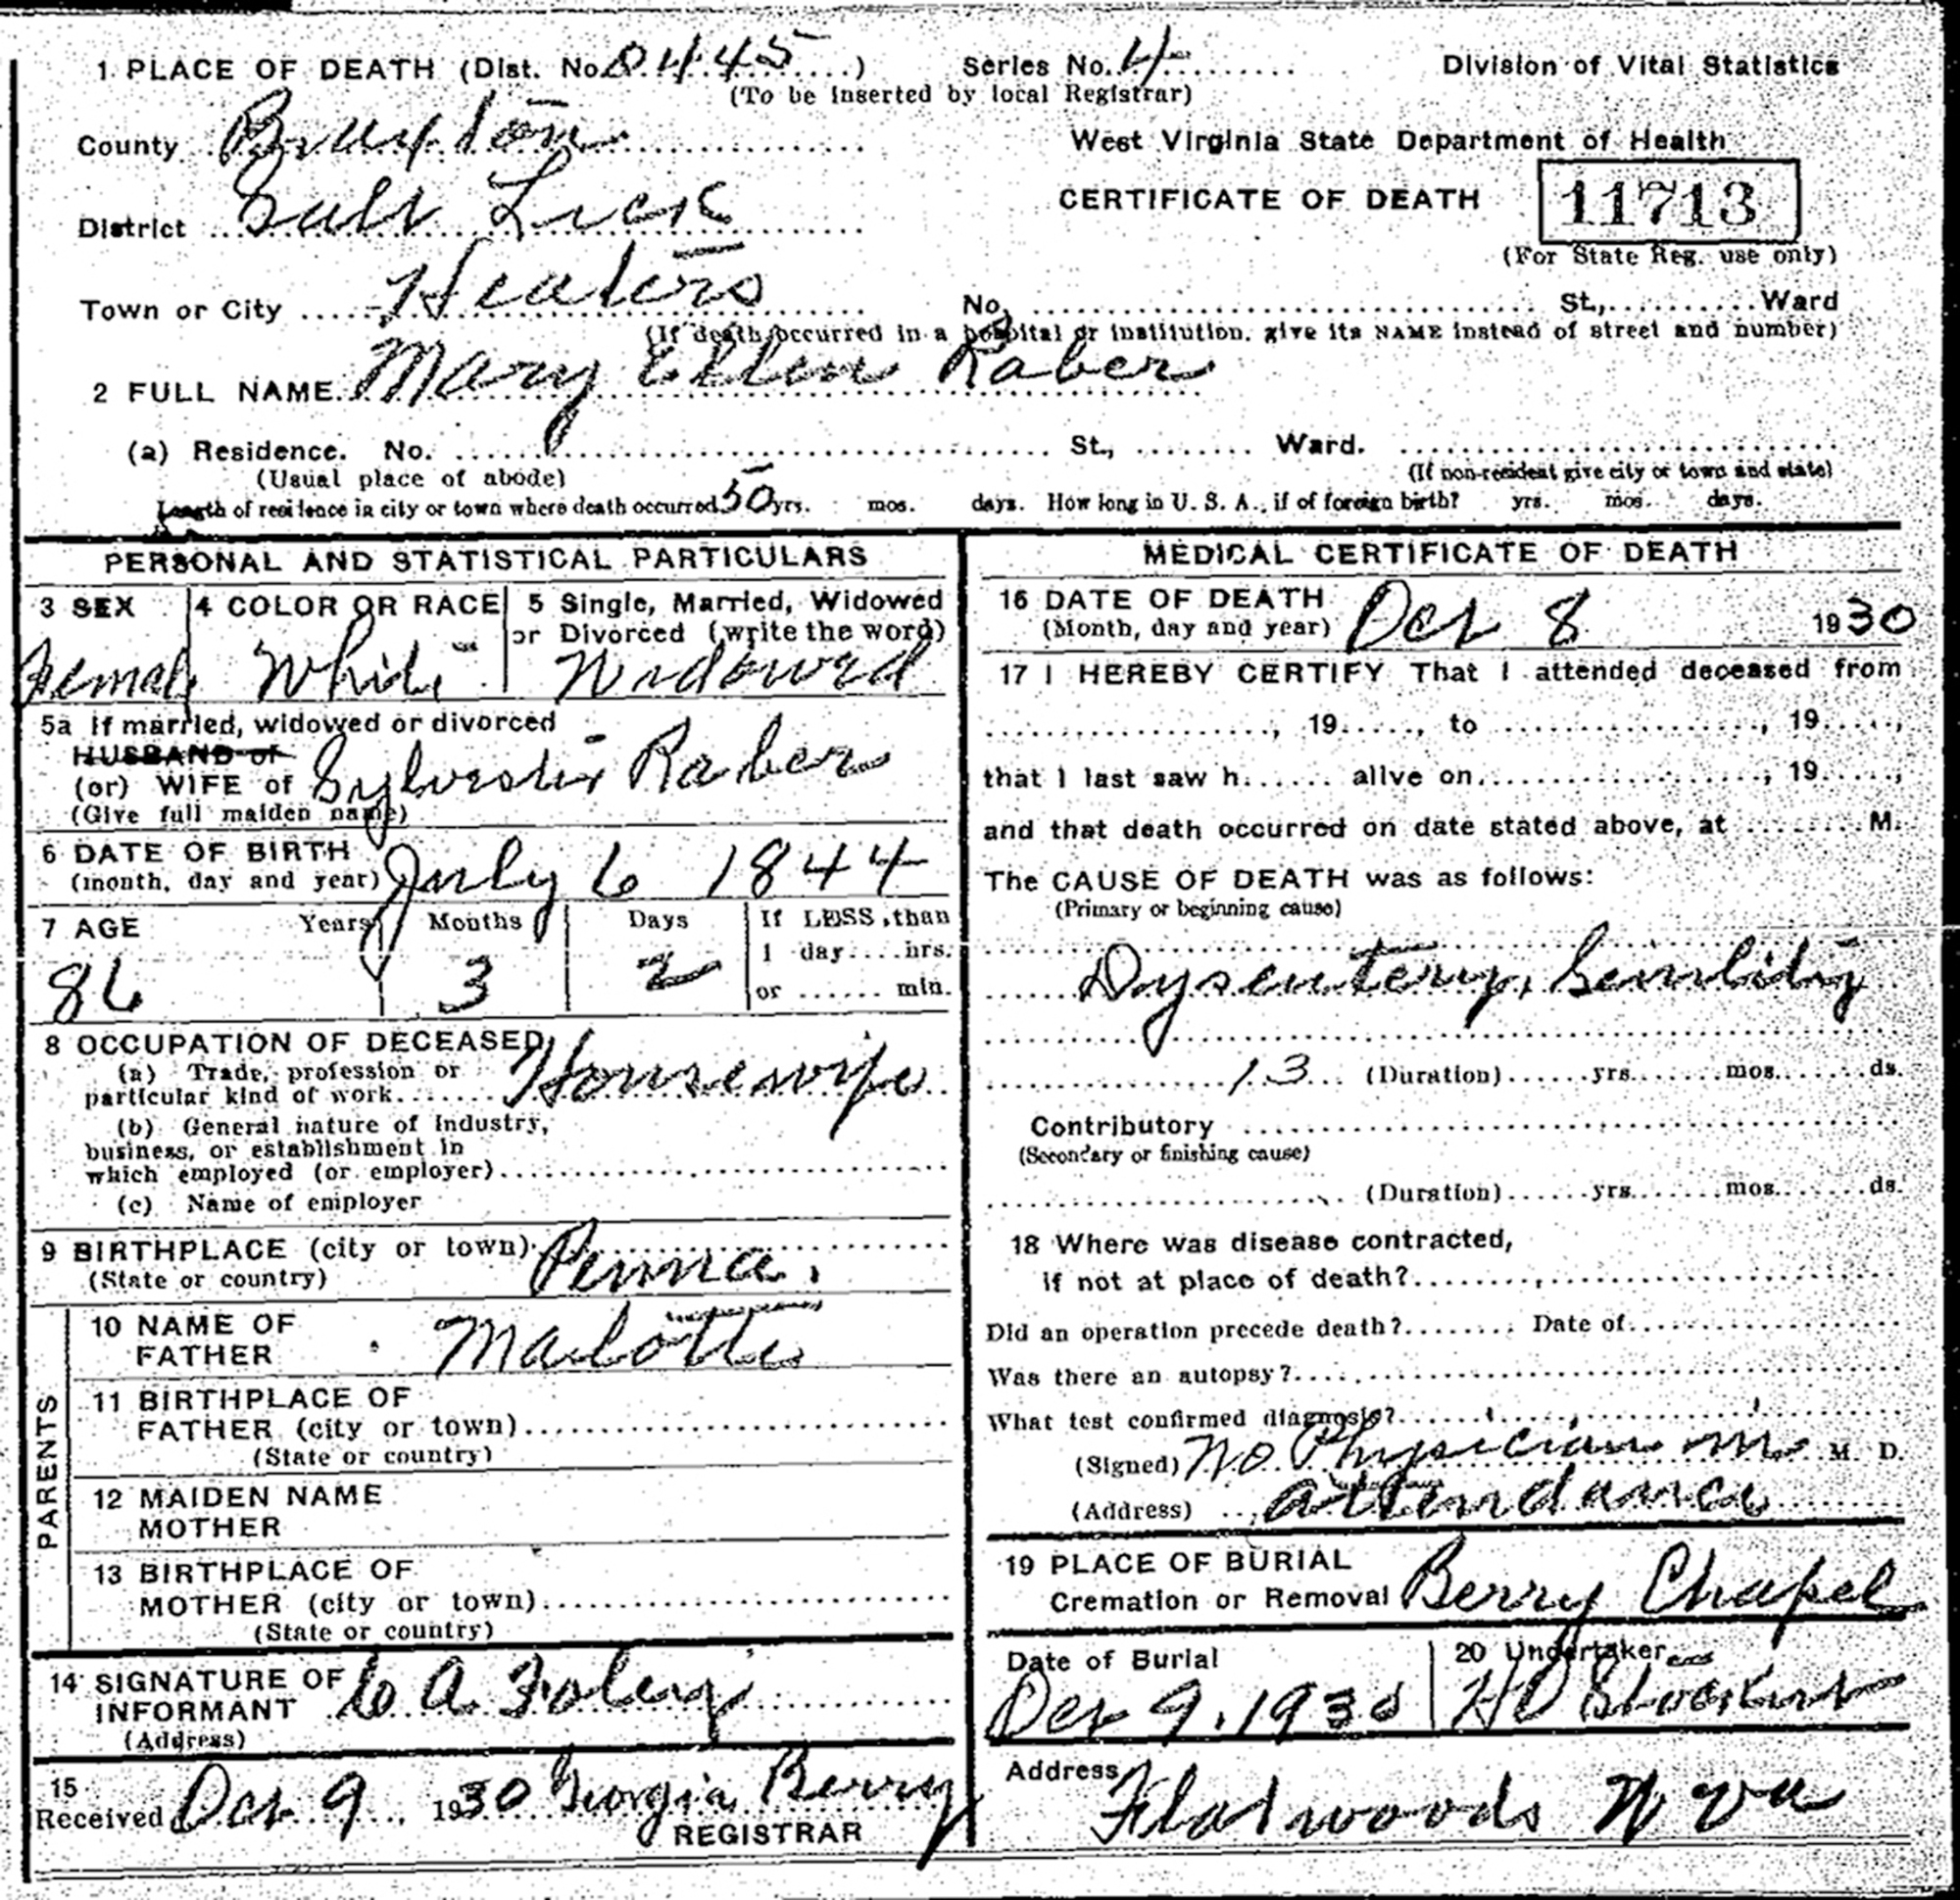 1 PLACE OF DEATH (Dist. No. 0445) Series No. 4 Division of Vital Statistics
(To be inserted by local Registrar)
County Braxton West Virginia State Department of Health
District Salt Lick CERTIFICATE OF DEATH 11713
(For State Reg. use only)
Town or City Heaters No. St., Ward
(If death occurred in a hospital or institution, give its NAME instead of street and number)
2 FULL NAME Mary Ellen Raber
(a) Residence. No. St., Ward.
(Usual place of abode) (If non-resident give city or town and state)
Length of residence in city or town where death occurred 50 yrs. mos. days. How long in U. S. A., if of foreign birth? yrs. mos. days.
PERSONAL AND STATISTICAL PARTICULARS
3 SEX 4 COLOR OR RACE 5 Single, Married, Widowed
or Divorced (write the word)
Female White Widowed
5a If married, widowed or divorced
HUSBAND of
(or) WIFE of Sylvester Raber
(Give full maiden name)
6 DATE OF BIRTH
(month, day and year) July 6 1844
7 AGE Years Months Days If LESS than
1 day....hrs.
86 3 2
or ...... min.
8 OCCUPATION OF DECEASED
(a) Trade, profession or
particular kind of work Housewife
(b) General nature of Industry,
business, or establishment in
which employed (or employer)
(c) Name of employer
9 BIRTHPLACE (city or town)
(State or country) Penna.
PARENTS
10 NAME OF
FATHER
11 BIRTHPLACE OF
FATHER (city or town)
(State or country)
12 MAIDEN NAME
MOTHER
13 BIRTHPLACE OF
MOTHER (city or town)
(State or country)
14 SIGNATURE OF
INFORMANT C A Foley
(Address)
15
Received Oct 9 1930 Georgia Berry
REGISTRAR
MEDICAL CERTIFICATE OF DEATH
16 DATE OF DEATH
(Month, day and year) Oct 8 1930
17 I HEREBY CERTIFY That I attended deceased from
, 19....., to , 19.....,
that I last saw h...... alive on , 19.....,
and that death occurred on date stated above, at M.
The CAUSE OF DEATH was as follows:
(Primary or beginning cause)
Dysentery,
13 (Duration) yrs. mos. ds.
Contributory
(Secondary or finishing cause)
(Duration) yrs. mos. ds.
18 Where was disease contracted,
if not at place of death?
Did an operation precede death? Date of
Was there an autopsy?
What test confirmed diagnosis?
(Signed) No Physician in M. D.
(Address) attendance
19 PLACE OF BURIAL
Cremation or Removal Berry Chapel
Date of Burial 20 Undertaker
Oct 9, 1930 H O
Address
Flatwoods W va